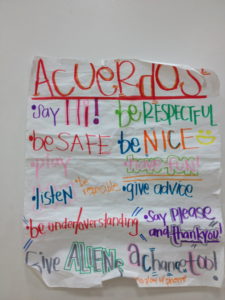 ACUERDOS
•say HI! be RESPECTFUL
•be SAFE be NICE
•play have fun!
•listen •give advice
•be under/overstanding •say please
and thankyou!
Give ALIENs a chance too!